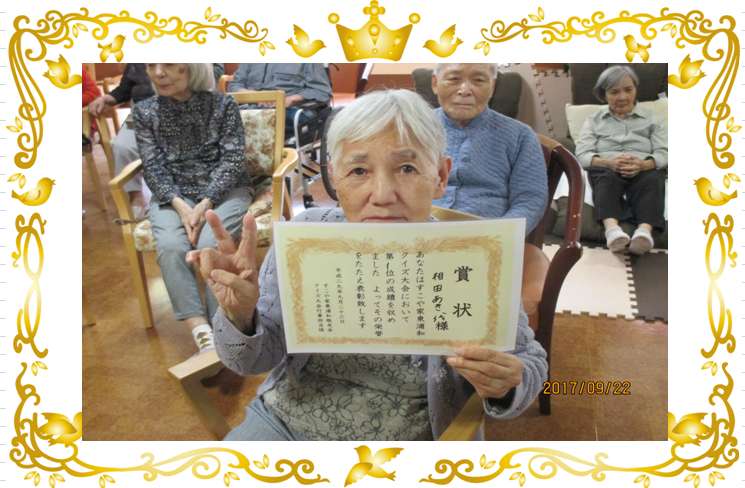 賞状
様
あなたはすこや家東浦和
クイズ大会において
第1位の成績を収め
ました よってその栄誉
をたたえ表彰致します
平成二九年九月二十二日
すこや家東浦和敬老会
クイズ大会行事担当
2017/09/22